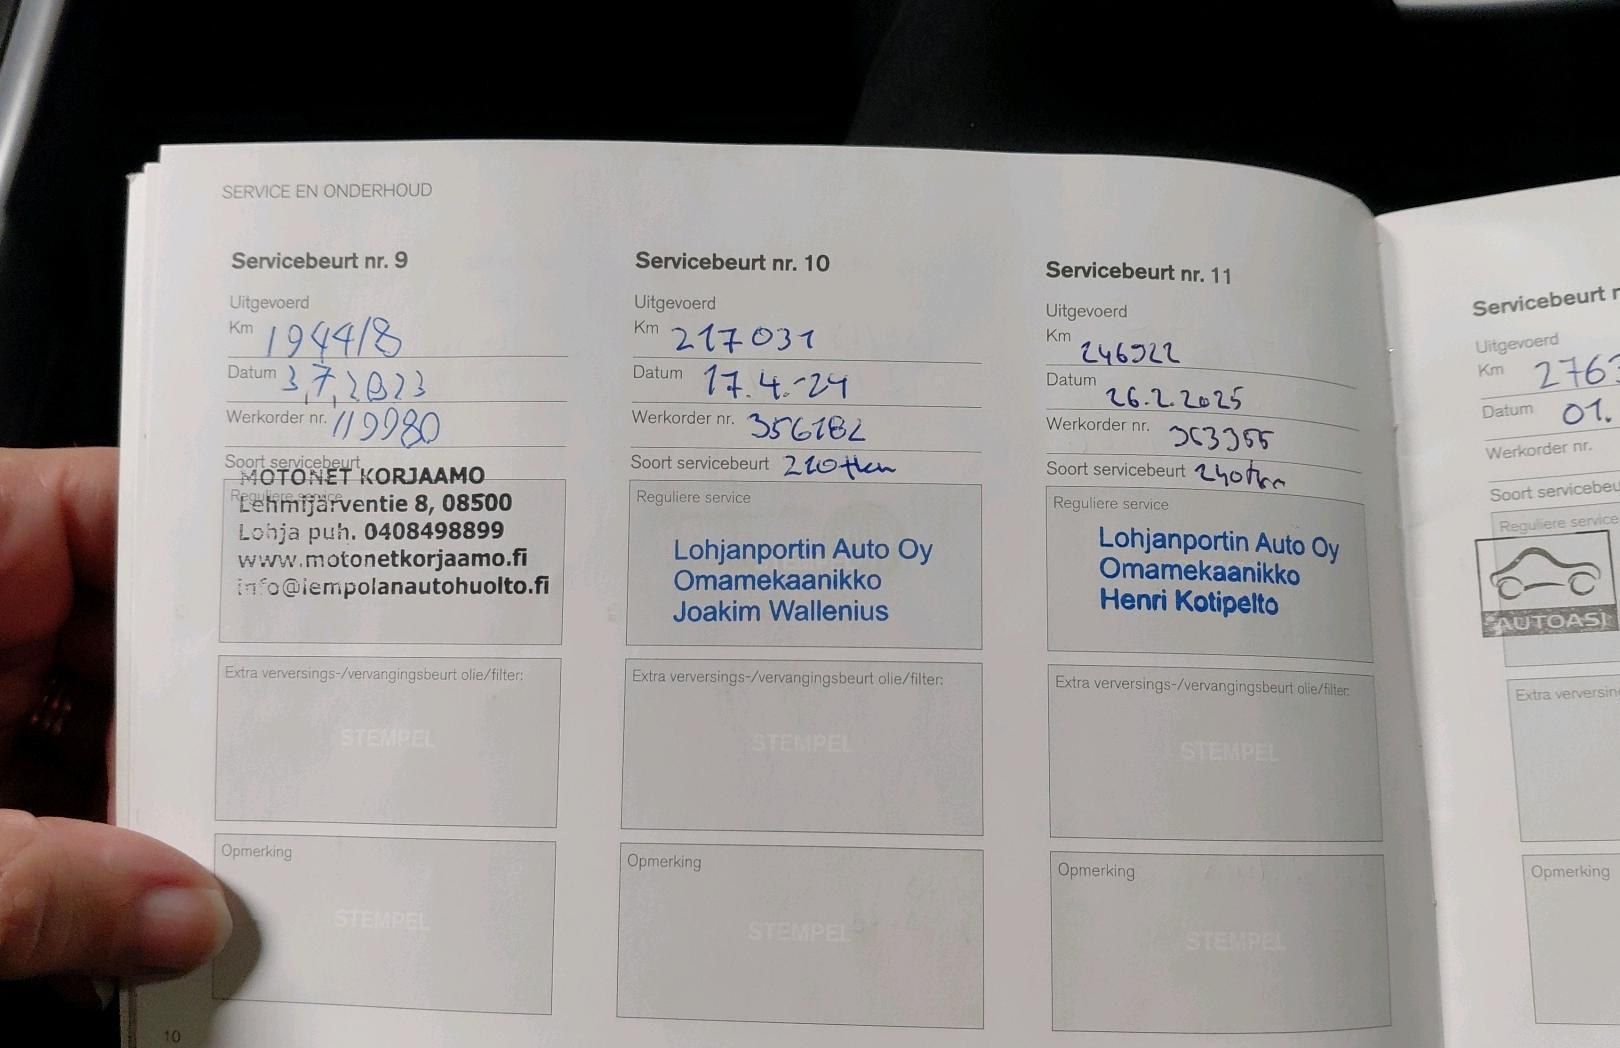 SERVICE EN ONDERHOUD
Servicebeurt nr. 9
Uitgevoerd
Km 194418
Datum 3,7,2023
Werkorder nr. 119980
Soort servicebeurt
Reguliere service
MOTONET KORJAAMO
Lehmijärventie 8, 08500
Lohja puh. 0408498899
www.motonetkorjaamo.fi
info@lempolanautohuolto.fi
Extra verversings-/vervangingsbeurt olie/filter:
STEMPEL
Opmerking
STEMPEL
10
Servicebeurt nr. 10
Uitgevoerd
Km 217031
Datum 17.4.-24
Werkorder nr. 356182
Soort servicebeurt 210tkm
Reguliere service
STEMPEL
Lohjanportin Auto Oy
Omamekaanikko
Joakim Wallenius
Extra verversings-/vervangingsbeurt olie/filter:
STEMPEL
Opmerking
STEMPEL
Servicebeurt nr. 11
Uitgevoerd
Km 246922
Datum 26.2.2025
Werkorder nr.
Soort servicebeurt 240tkm
Reguliere service
Lohjanportin Auto Oy
Omamekaanikko
Henri Kotipelto
Extra verversings-/vervangingsbeurt olie/filter:
STEMPEL
Opmerking
STEMPEL
Servicebeurt
Uitgevoerd
Km 2763
Datum 01.
Werkorder nr.
Soort servicebeu
Reguliere service
AUTOASI
Extra verversin
Opmerking